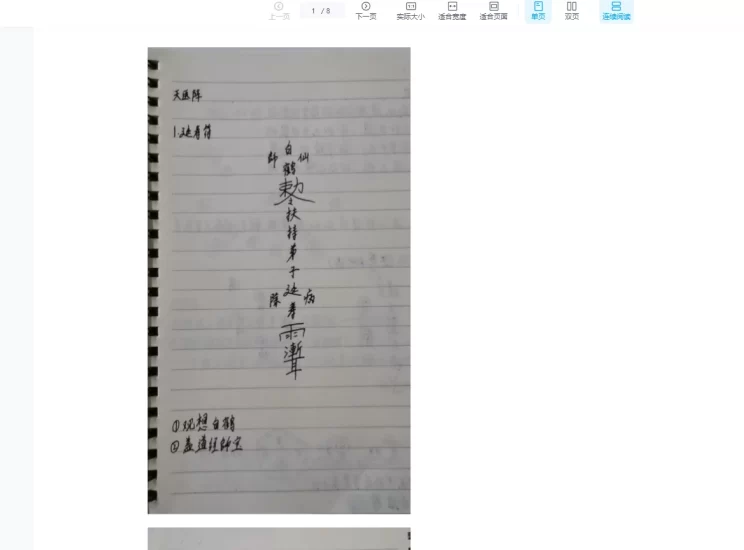 上一页
1 / 8
下一页
实际大小
适合宽度
适合页面
单页
双页
连续阅读
天医阵
1 延寿符
白鹤
師 仙
敕令
扶持弟子延寿
除 病
雨漸耳
①观想白鹤
②盖道经師宝